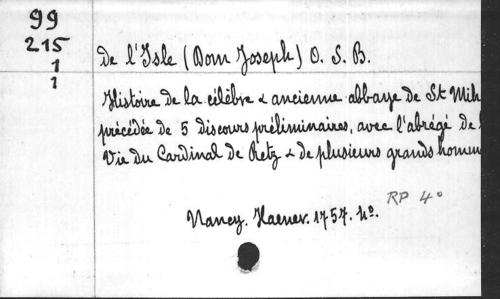 99
215
1
1
De l'Isle (Dom Joseph) O. S. B.
Histoire de la célèbre & ancienne abbaye de St Mih
précédée de 5 discours préliminaires, avec l'abrégé de
Vie du Cardinal de Retz & de plusieurs grands homm
RP 4°
Nancy. Haener. 1757. 4°.